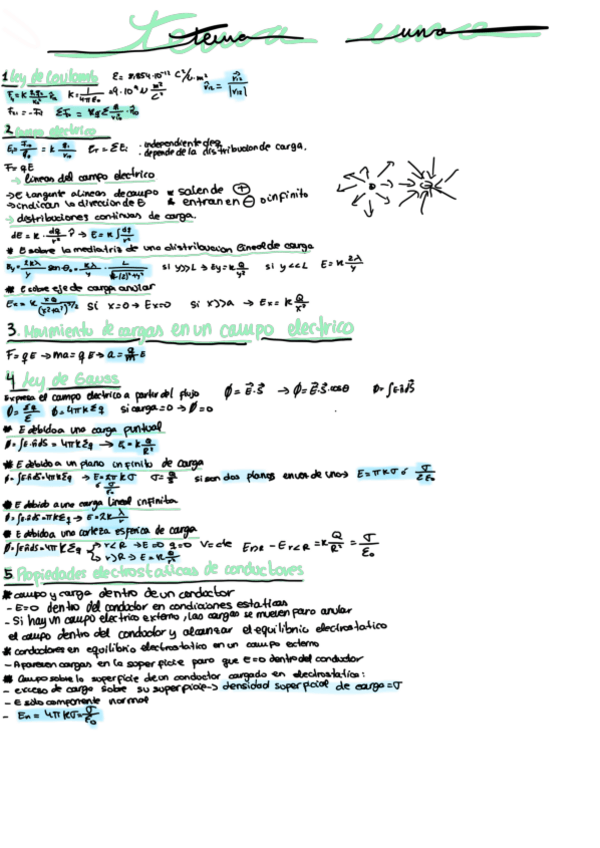 tema una
1. Ley de Coulomb
F₁₂ = -F₂₁
2. Campo electrico
Er = ΣEi
· independiente de q.
· depende de la distribucion de carga.
F = qE
→ líneas del campo electrico
→ E tangente a lineas de campo * salen de ⊕
→ indican la direccion de E * entran en ⊖ o infinito
→ distribuciones continuas de carga.
dE = K · dq/r² r̂ → E = K∫dq/r²
* E sobre la mediatriz de una distribucion lineal de carga
si y>>L → Ey = K Q/y² si y<<L E = K 2λ/y
* E sobre eje de carga anular
Ex = K xQ/(x²+a²)^3/2 si x=0 → Ex=0 si x>>a → Ex = K Q/x²
3. Movimiento de cargas en un campo electrico
F = qE → ma = qE → a = q/m E
4 Ley de Gauss
Expresa el campo electrico a partir del flujo ϕ = E⃗·S⃗ → ϕ = E⃗·S⃗·cosθ
ϕ = Σq/ε ϕ = 4πKΣq si carga = 0 → ϕ = 0
* E debido a una carga puntual
ϕ = ∫E·n̂dS = 4πKΣq → E = K Q/R²
* E debido a un plano infinito de carga
* E debido a una carga lineal infinita
ϕ = ∫E·n̂dS = 4πKΣq → E = 2K λ/r
* E debido a una corteza esferica de carga
r<R → E=0 q=0
r>R → E = K Q/r²
E r>R - E r<R = K Q/R² = σ/ε₀
5. Propiedades electrostaticas de conductores
* campo y carga dentro de un conductor
- E=0 dentro del conductor en condiciones estaticas
- Si hay un campo electrico externo, las cargas se mueven para anular
el campo dentro del conductor y alcanzar el equilibrio electrostatico
* conductores en equilibrio electrostatico en un campo externo
- Aparecen cargas en la superficie para que E=0 dentro del conductor
* Campo sobre la superficie de un conductor cargado en electrostatica:
- exceso de carga sobre su superficie → densidad superficial de carga = σ
- E sólo componente normal
- En = 4πKσ = σ/ε₀